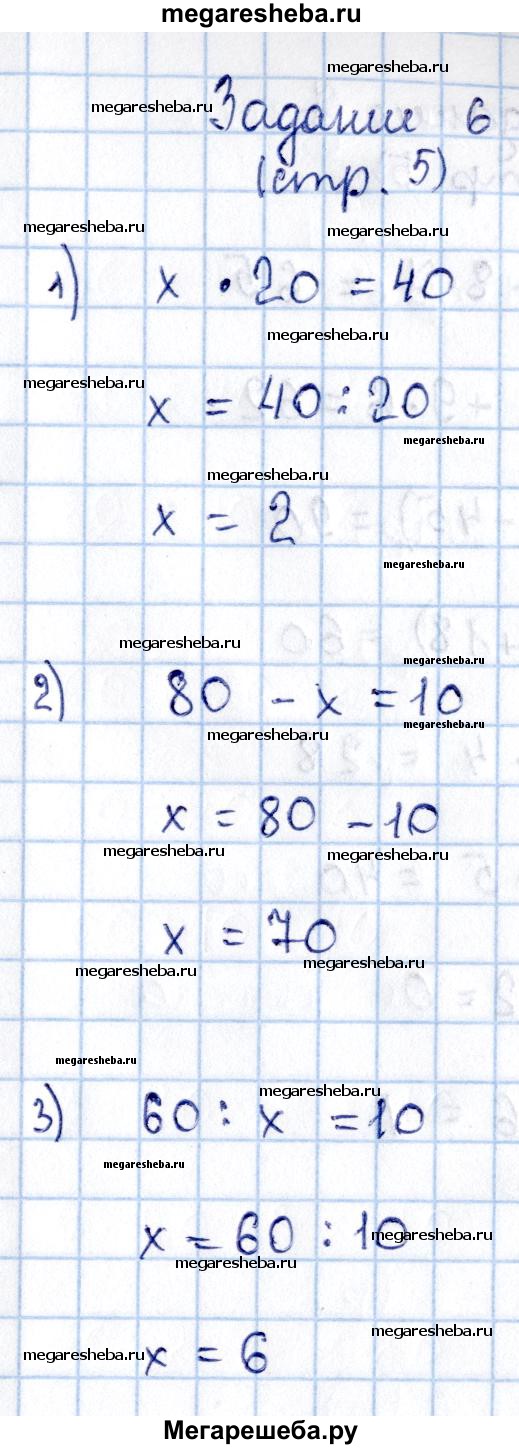 megaresheba.ru
megaresheba.ru
megaresheba.ru
Задание 6
(стр. 5)
megaresheba.ru
megaresheba.ru
1) x · 20 = 40
megaresheba.ru
megaresheba.ru
x = 40 : 20
megaresheba.ru
megaresheba.ru
x = 2
megaresheba.ru
megaresheba.ru
megaresheba.ru
2) 80 - x = 10
megaresheba.ru
megaresheba.ru
x = 80 - 10
megaresheba.ru
megaresheba.ru
x = 70
megaresheba.ru
megaresheba.ru
megaresheba.ru
megaresheba.ru
3) 60 : x = 10
megaresheba.ru
x = 60 : 10
megaresheba.ru
megaresheba.ru
megaresheba.ru
megaresheba.ru
x = 6
Мегарешеба.ру